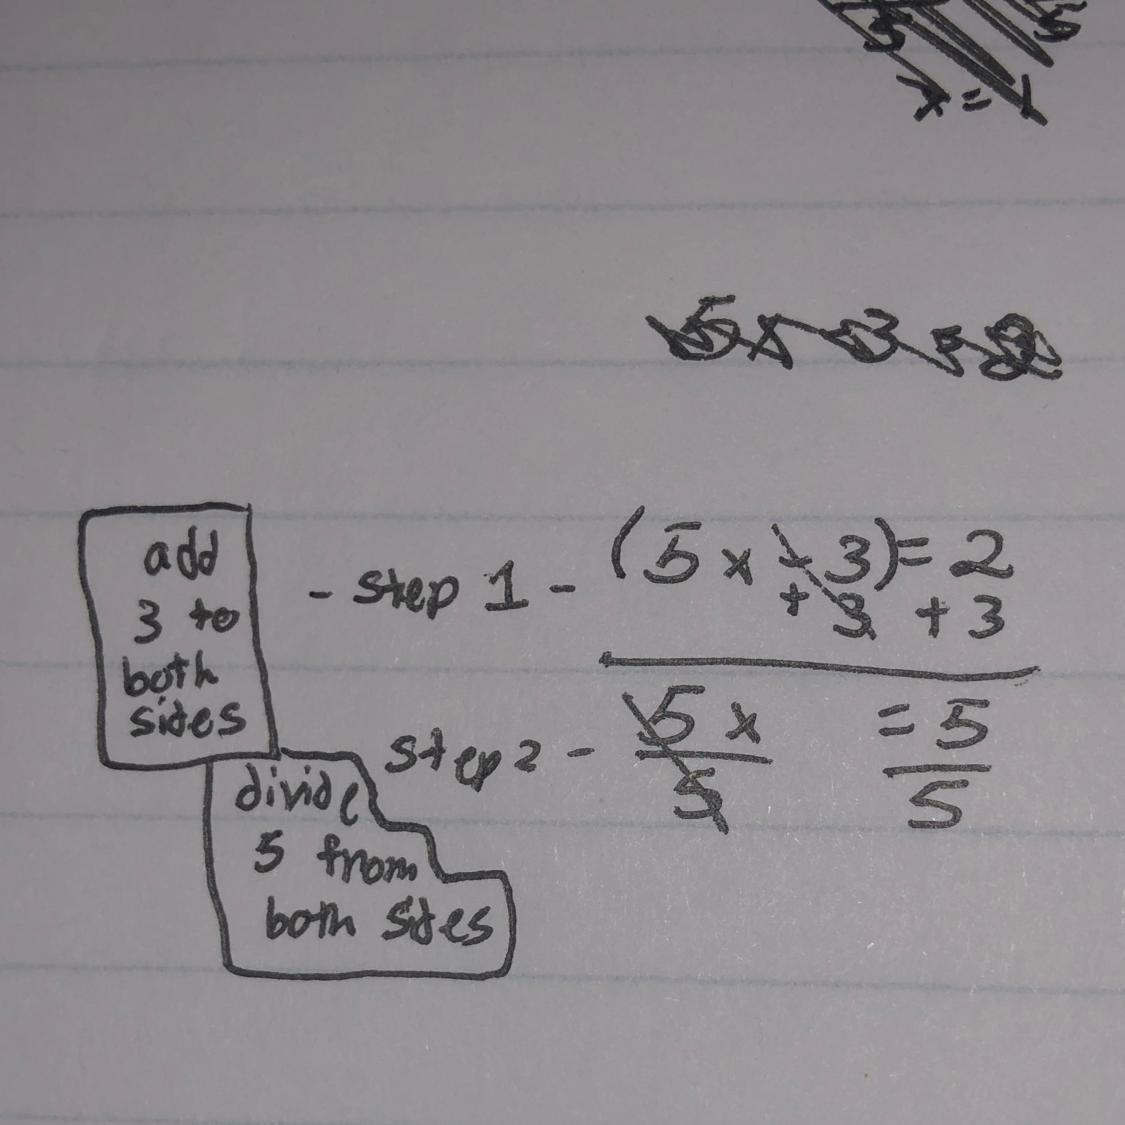 5 5
x = 1
5x - 3 = 2
add
3 to
both
sides
- step 1 - (5x - 3) = 2
+ 3 + 3
step 2 - 5x = 5
5 5
divide
5 from
both sides